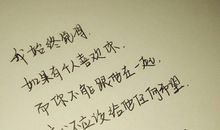 我始终觉得.
如果有个人喜欢你.
而你不能跟他在一起.
就不应该给他任何希望